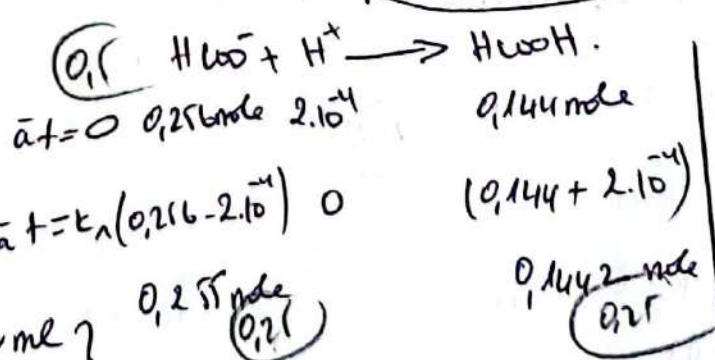 0,5 HCOO⁻ + H⁺ → HCOOH.
à t=0 0,256mole 2.10⁻⁴ 0,144 mole
à t=t₁ (0,256-2.10⁻⁴) 0 (0,144 + 2.10⁻⁴)
0,255 mole 0,1442 mole
ml ? 0,25 0,25